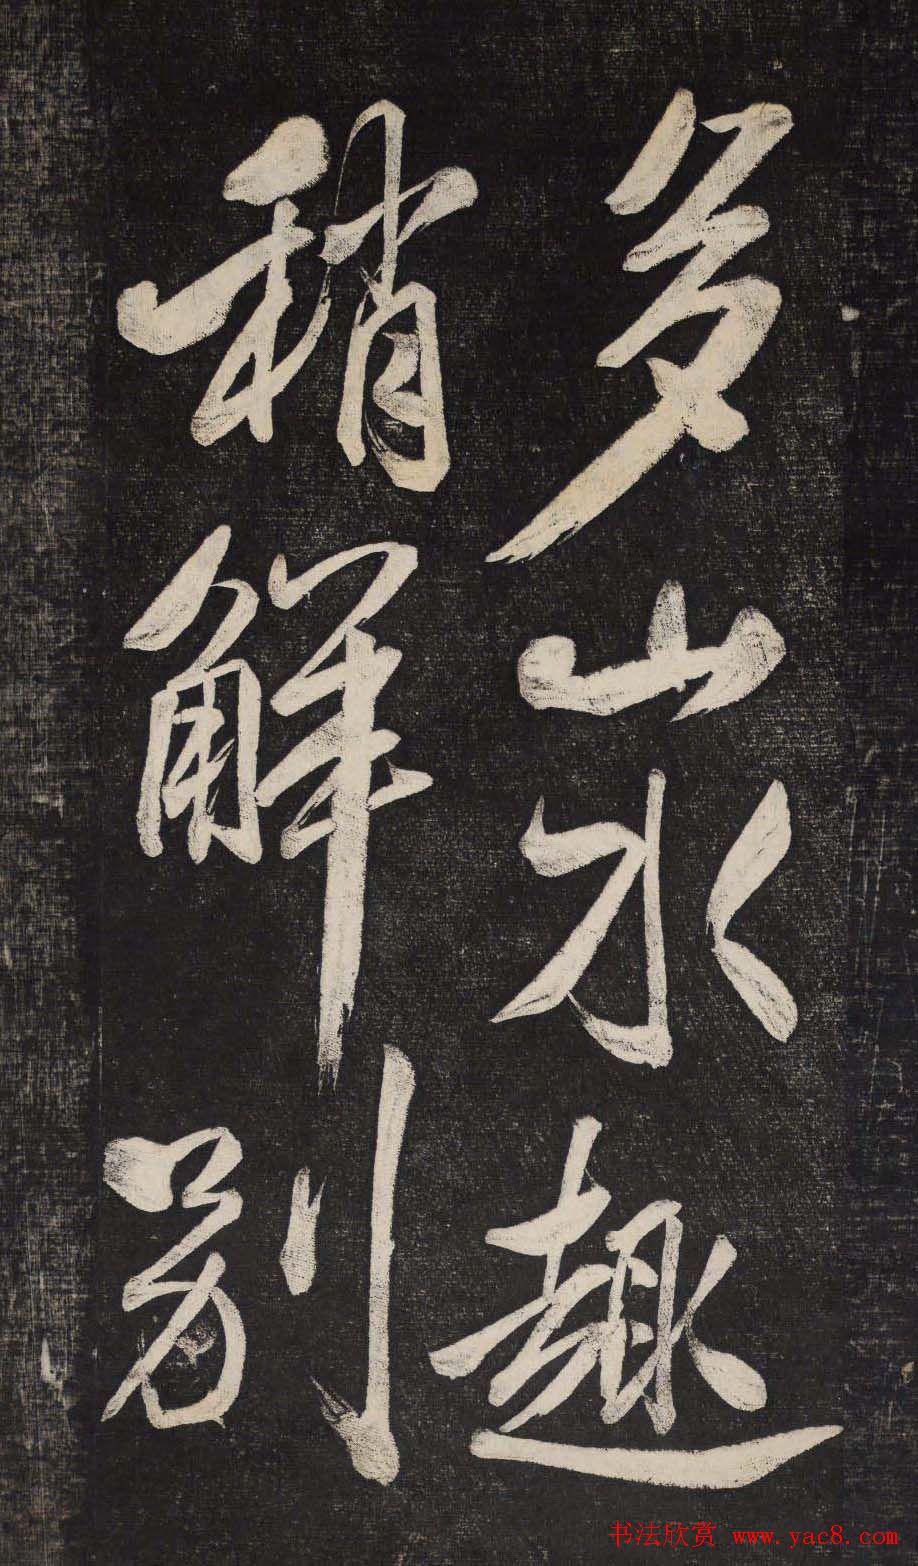 多山水趣
稍解別
书法欣赏 www.yac8.com